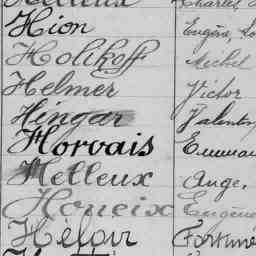 Hion Eugène
Holikoff Michel
Helmer Victor
Hingar Valentin
Horvais Emman
Helleux Ange.
Houeix Eugène
Helour Fortuné